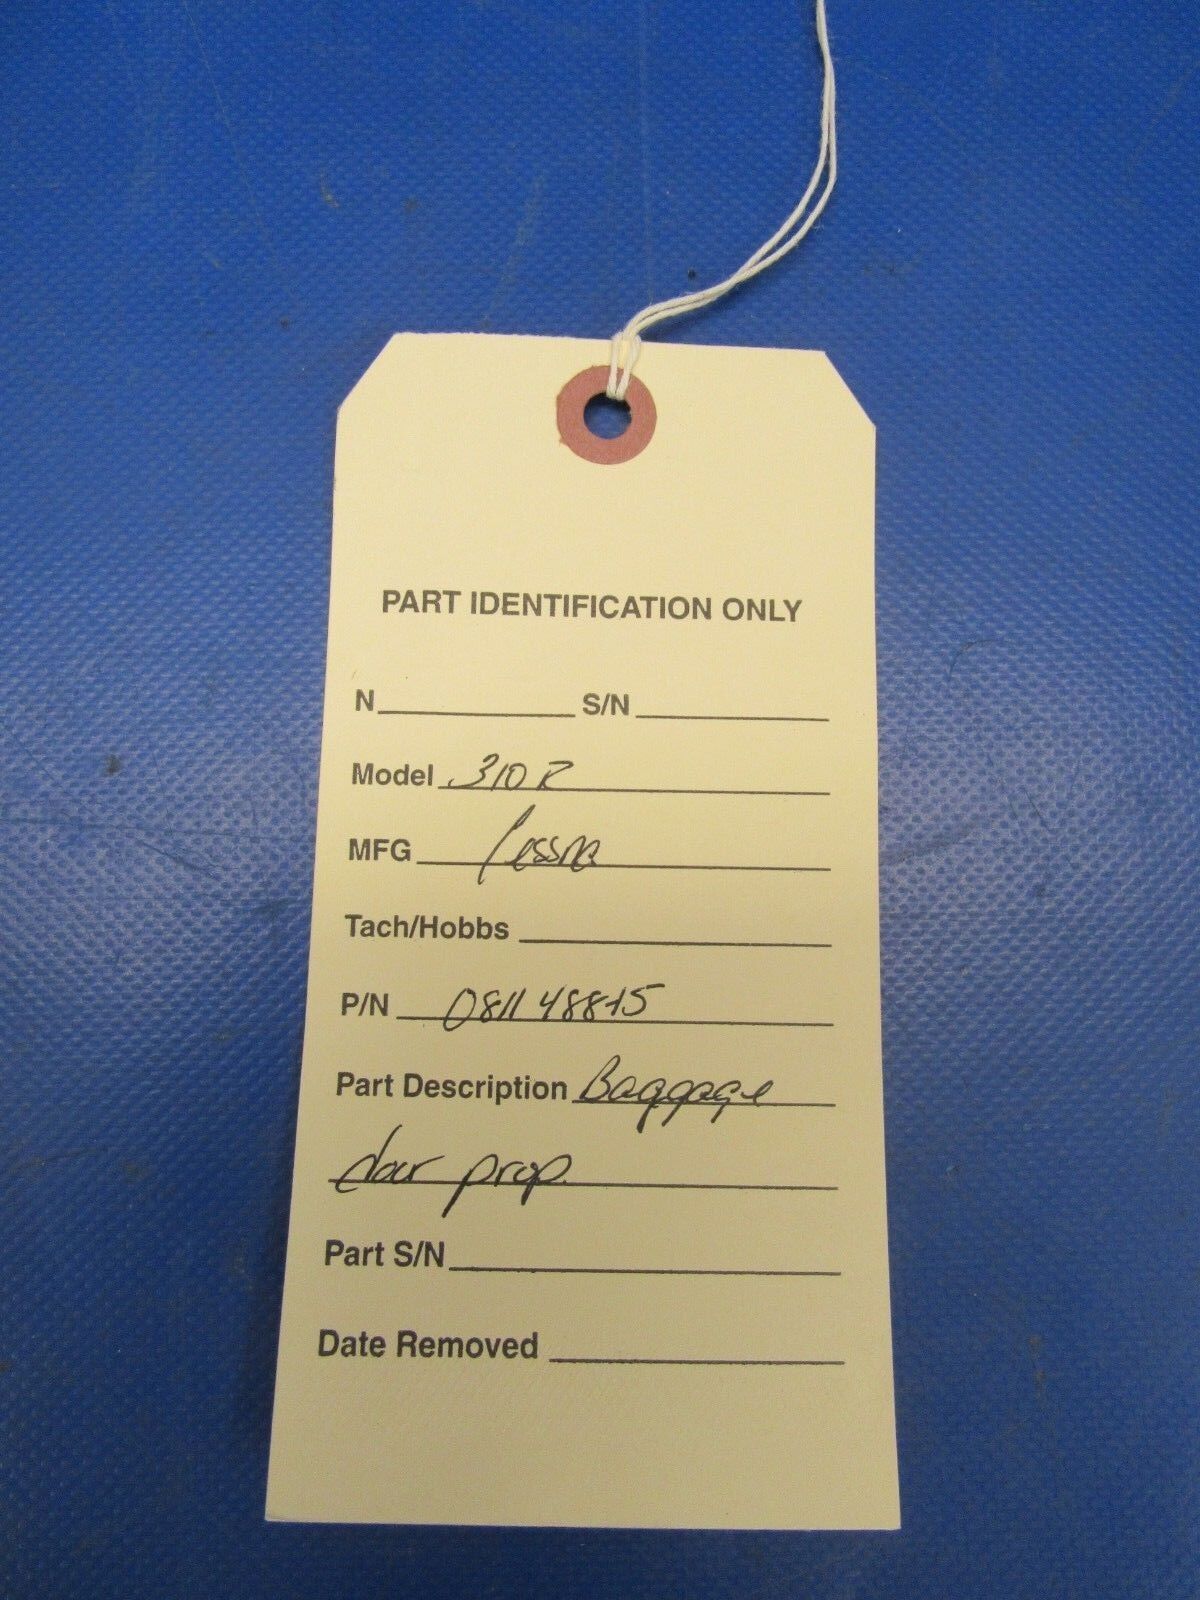 PART IDENTIFICATION ONLY
N__________ S/N__________
Model 310R
MFG Cessna
Tach/Hobbs__________
P/N 081148815
Part Description Baggage
door prop.
Part S/N__________
Date Removed__________